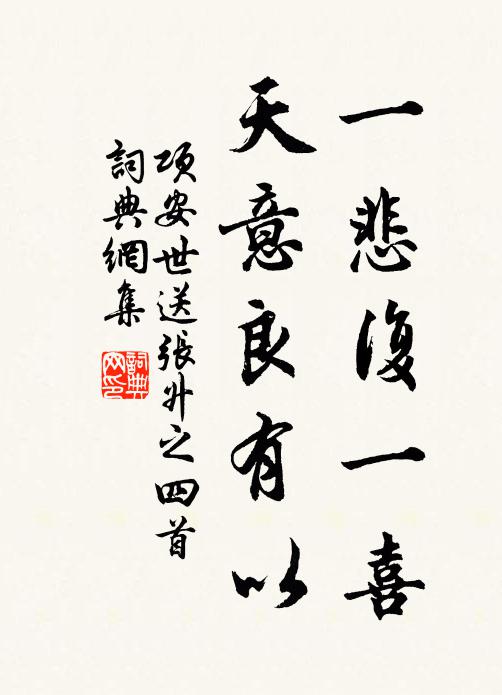 一悲復一喜
天意良有以
項安世送張升之四首
詞典網集
詞典
网印